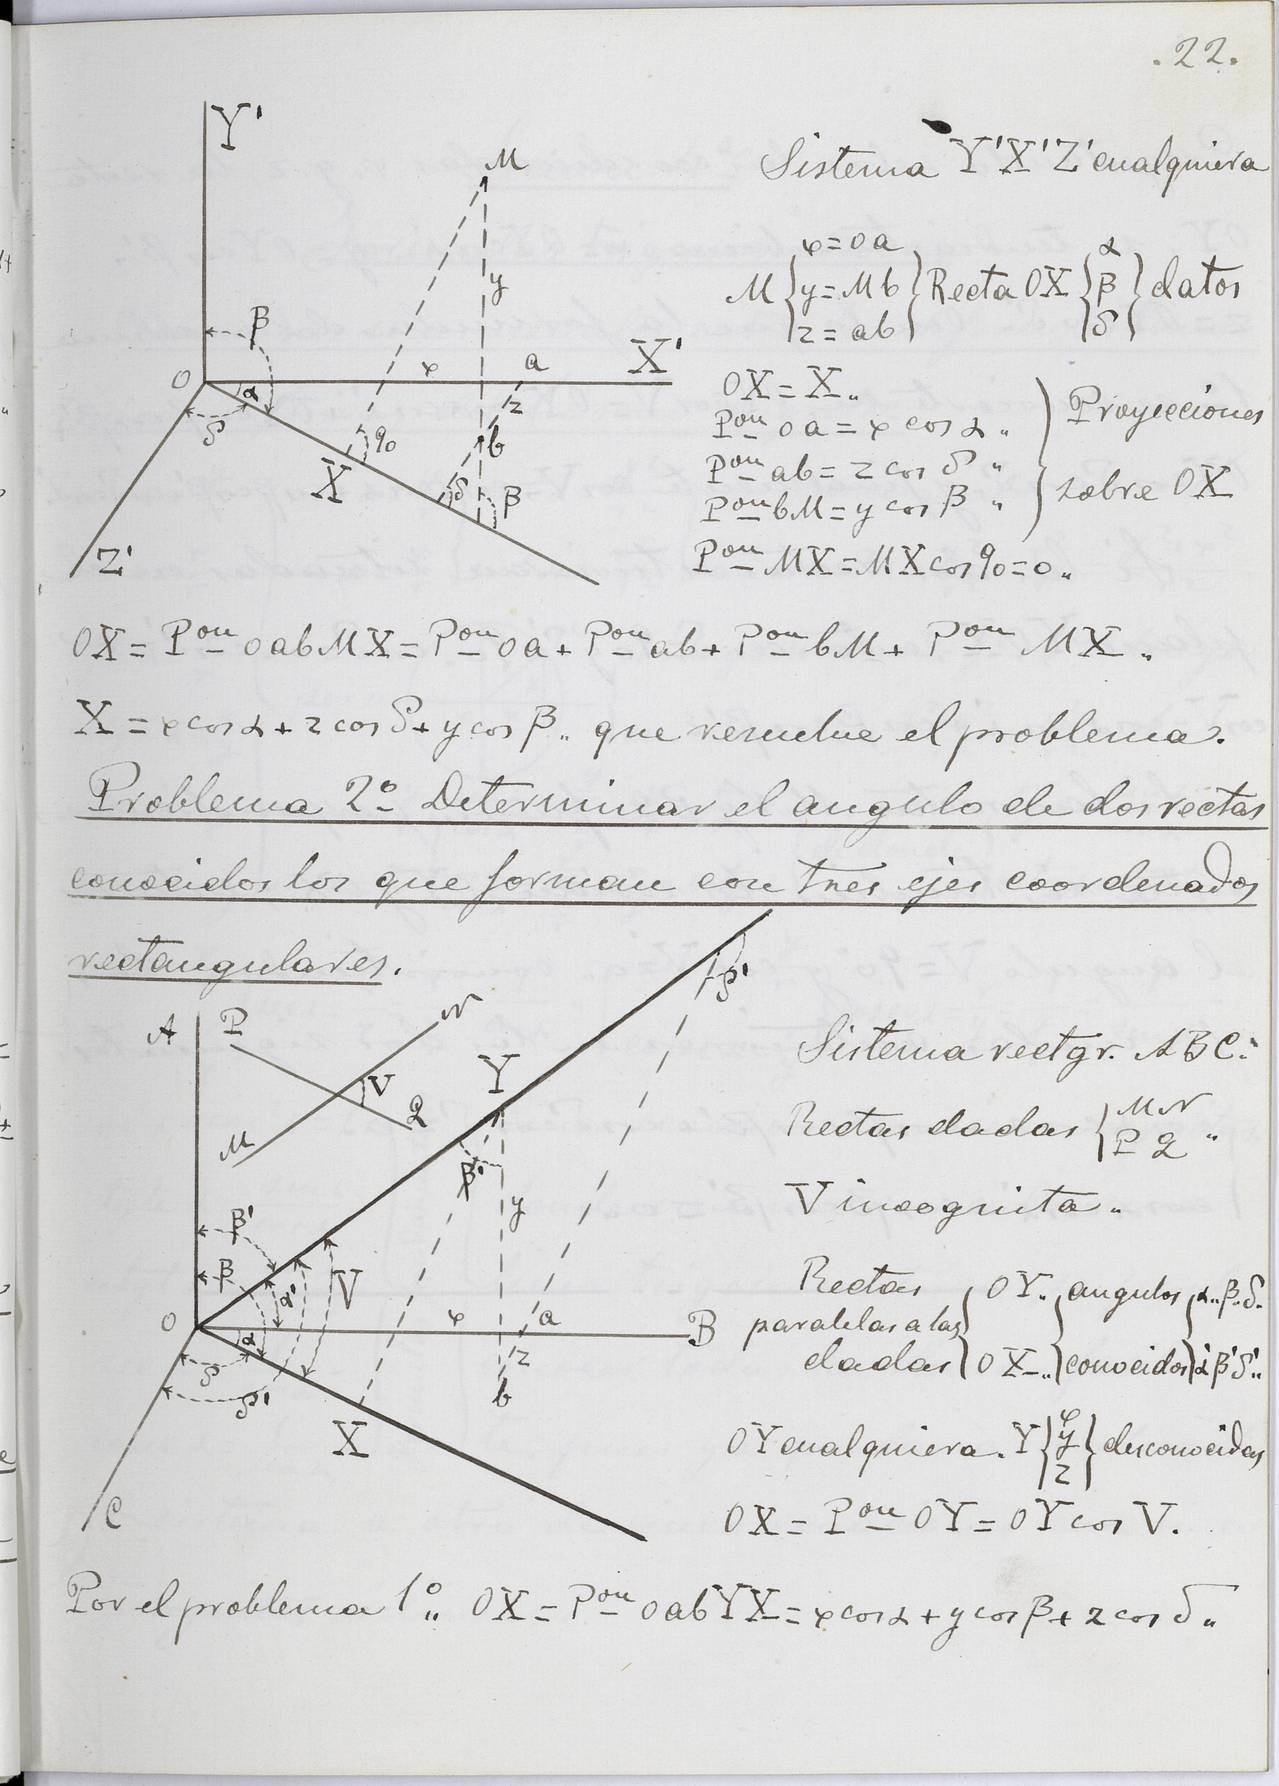 . 22.
Y'
M
Sistema Y'X'Z' cualquiera
M { x = oa  y = Mb  z = ab } Recta OX { α  β  δ } datos
y
β
O x a X'
α
z
δ
90
b
X
δ β
Z'
OX = X „
Pon oa = x cos α „
Pon ab = z cos δ „
Pon bM = y cos β „
Proyecciones
sobre OX
Pon MX = MX cos 90 = o „
OX = Pon oabMX = Pon oa + Pon ab + Pon bM + Pon MX „
X = x cos α + z cos δ + y cos β „ que resuelve el problema.
Problema 2º Determinar el angulo de dos rectas
conocidos los que forman con tres ejes coordenados
rectangulares.
β'
A P N
V
Y
M Q
β'
y
β'
β
α'
V
O x a B
α
z
δ
b
δ'
X
C
Sistema rectgr. ABC:
Rectas dadas { MN  PQ „
V incognita „
Rectas
paralelas a las
dadas
{ OY „ } angulos { α „ β „ δ „
{ OX „ } conocidos { α' β' δ' „
OY cualquiera. Y { x  y  z } desconocidas
OX = Pon OY = OY cos V.
Por el problema 1º „ OX = Pon oabYX = x cos α + y cos β + z cos δ „